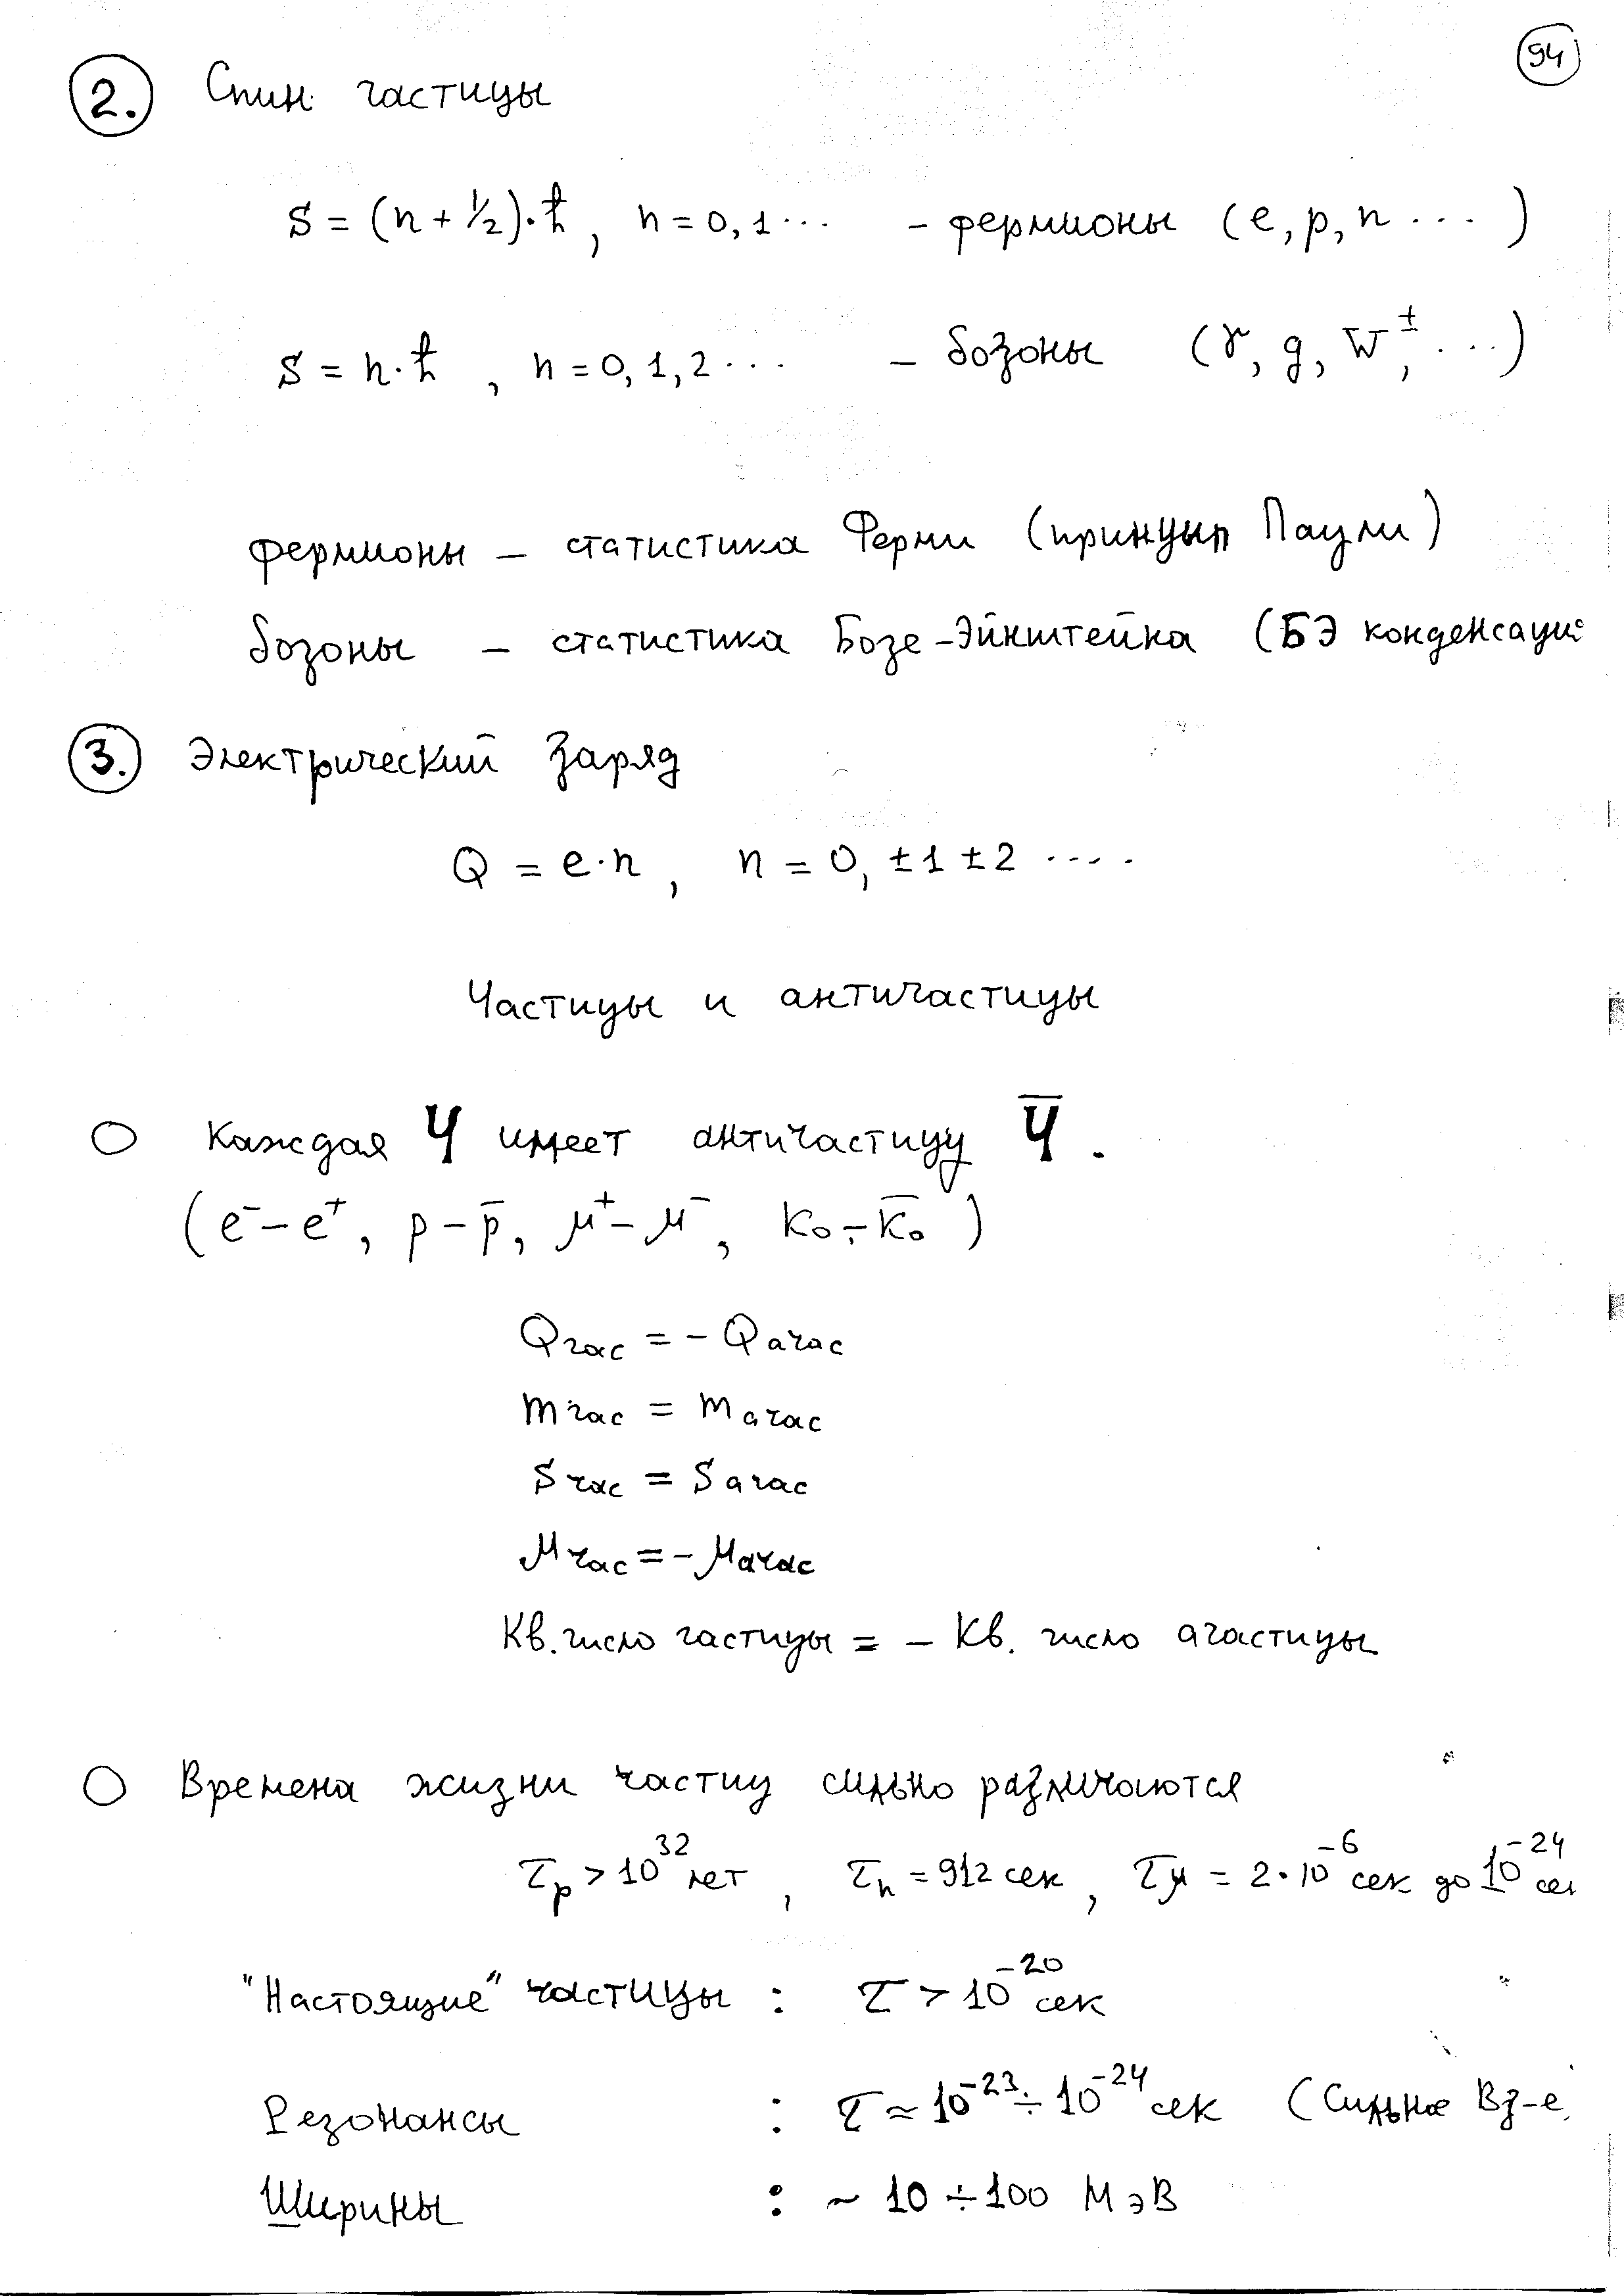 94
2. Спин частицы
S = (n + 1/2)·ħ, n = 0, 1 ... – фермионы (e, p, n ...)
S = n·ħ, n = 0, 1, 2 ... – бозоны (γ, g, W±, ...)
фермионы – статистика Ферми (принцып Паули)
бозоны – статистика Бозе-Эйнштейна (БЭ конденсаци
3. Электрический заряд
Q = e·n, n = 0, ±1 ±2 ....
Частицы и античастицы
○ Каждая Ч имеет античастицу Ч̅.
(e⁻ – e⁺, p – p̅, μ⁺ – μ⁻, K₀ – K̅₀)
Qчас = – Qачас
mчас = mачас
Sчас = Sачас
μчас = – μачас
Кв. число частицы = – Кв. число ачастицы
○ Времена жизни частиц сильно различаются
τp > 10³² лет, τn = 912 сек, τμ = 2·10⁻⁶ сек до 10⁻²⁴ сек
"Настоящие" частицы : τ > 10⁻²⁰ сек
Резонансы : τ ≃ 10⁻²³ ÷ 10⁻²⁴ сек (Сильное Вз-е
Ширины : ~ 10 ÷ 100 МэВ